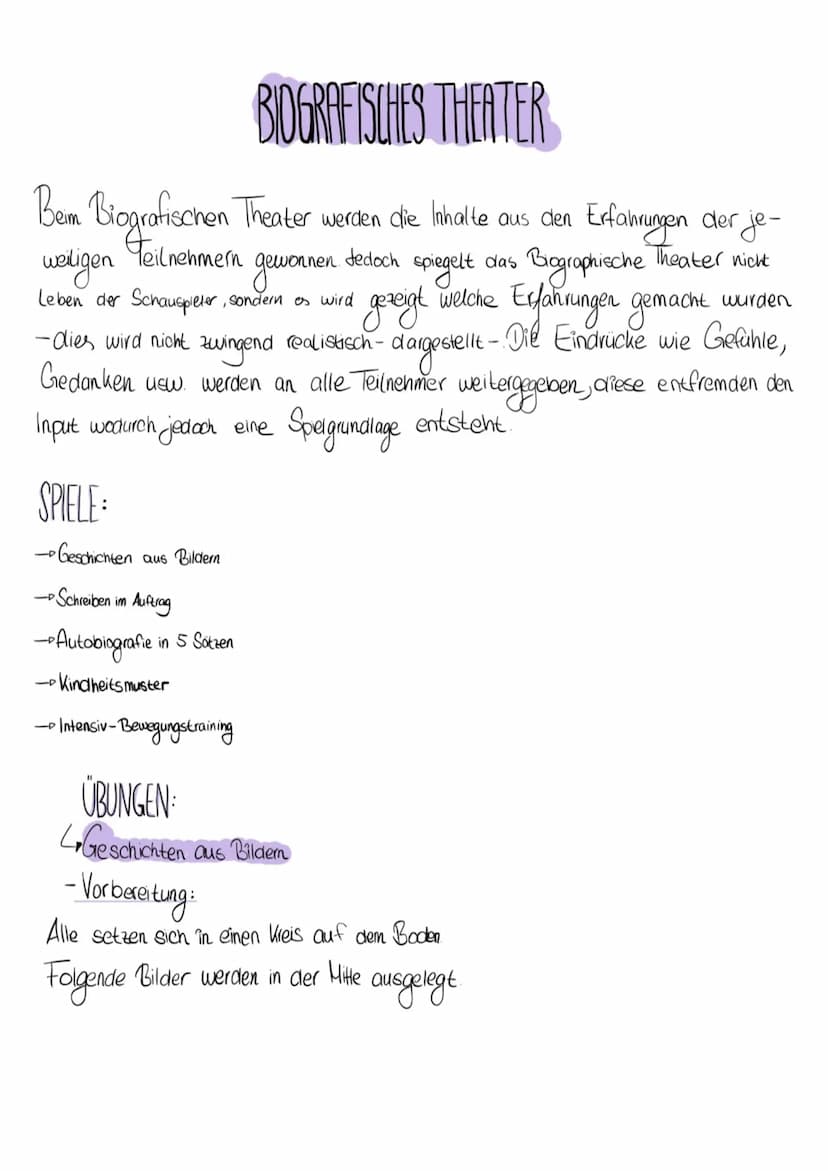 BIOGRAFISCHES THEATER
Beim Biografischen Theater werden die Inhalte aus den Erfahrungen der je-
weiligen Teilnehmern gewonnen. Jedoch spiegelt das Biographische Theater nicht
Leben der Schauspieler, sondern es wird gezeigt welche Erfahrungen gemacht wurden
-dies wird nicht zwingend realistisch- dargestellt-. Die Eindrücke wie Gefühle,
Gedanken usw. werden an alle Teilnehmer weitergegeben, diese entfremden den
Input wodurch jedoch eine Spielgrundlage entsteht.
SPIELE:
→Geschichten aus Bildern
→Schreiben im Auftrag
→Autobiografie in 5 Sätzen
→Kindheitsmuster
→Intensiv-Bewegungstraining
ÜBUNGEN:
↳Geschichten aus Bildern
-Vorbereitung:
Alle setzen sich in einen Kreis auf dem Boden
Folgende Bilder werden in der Mitte ausgelegt.